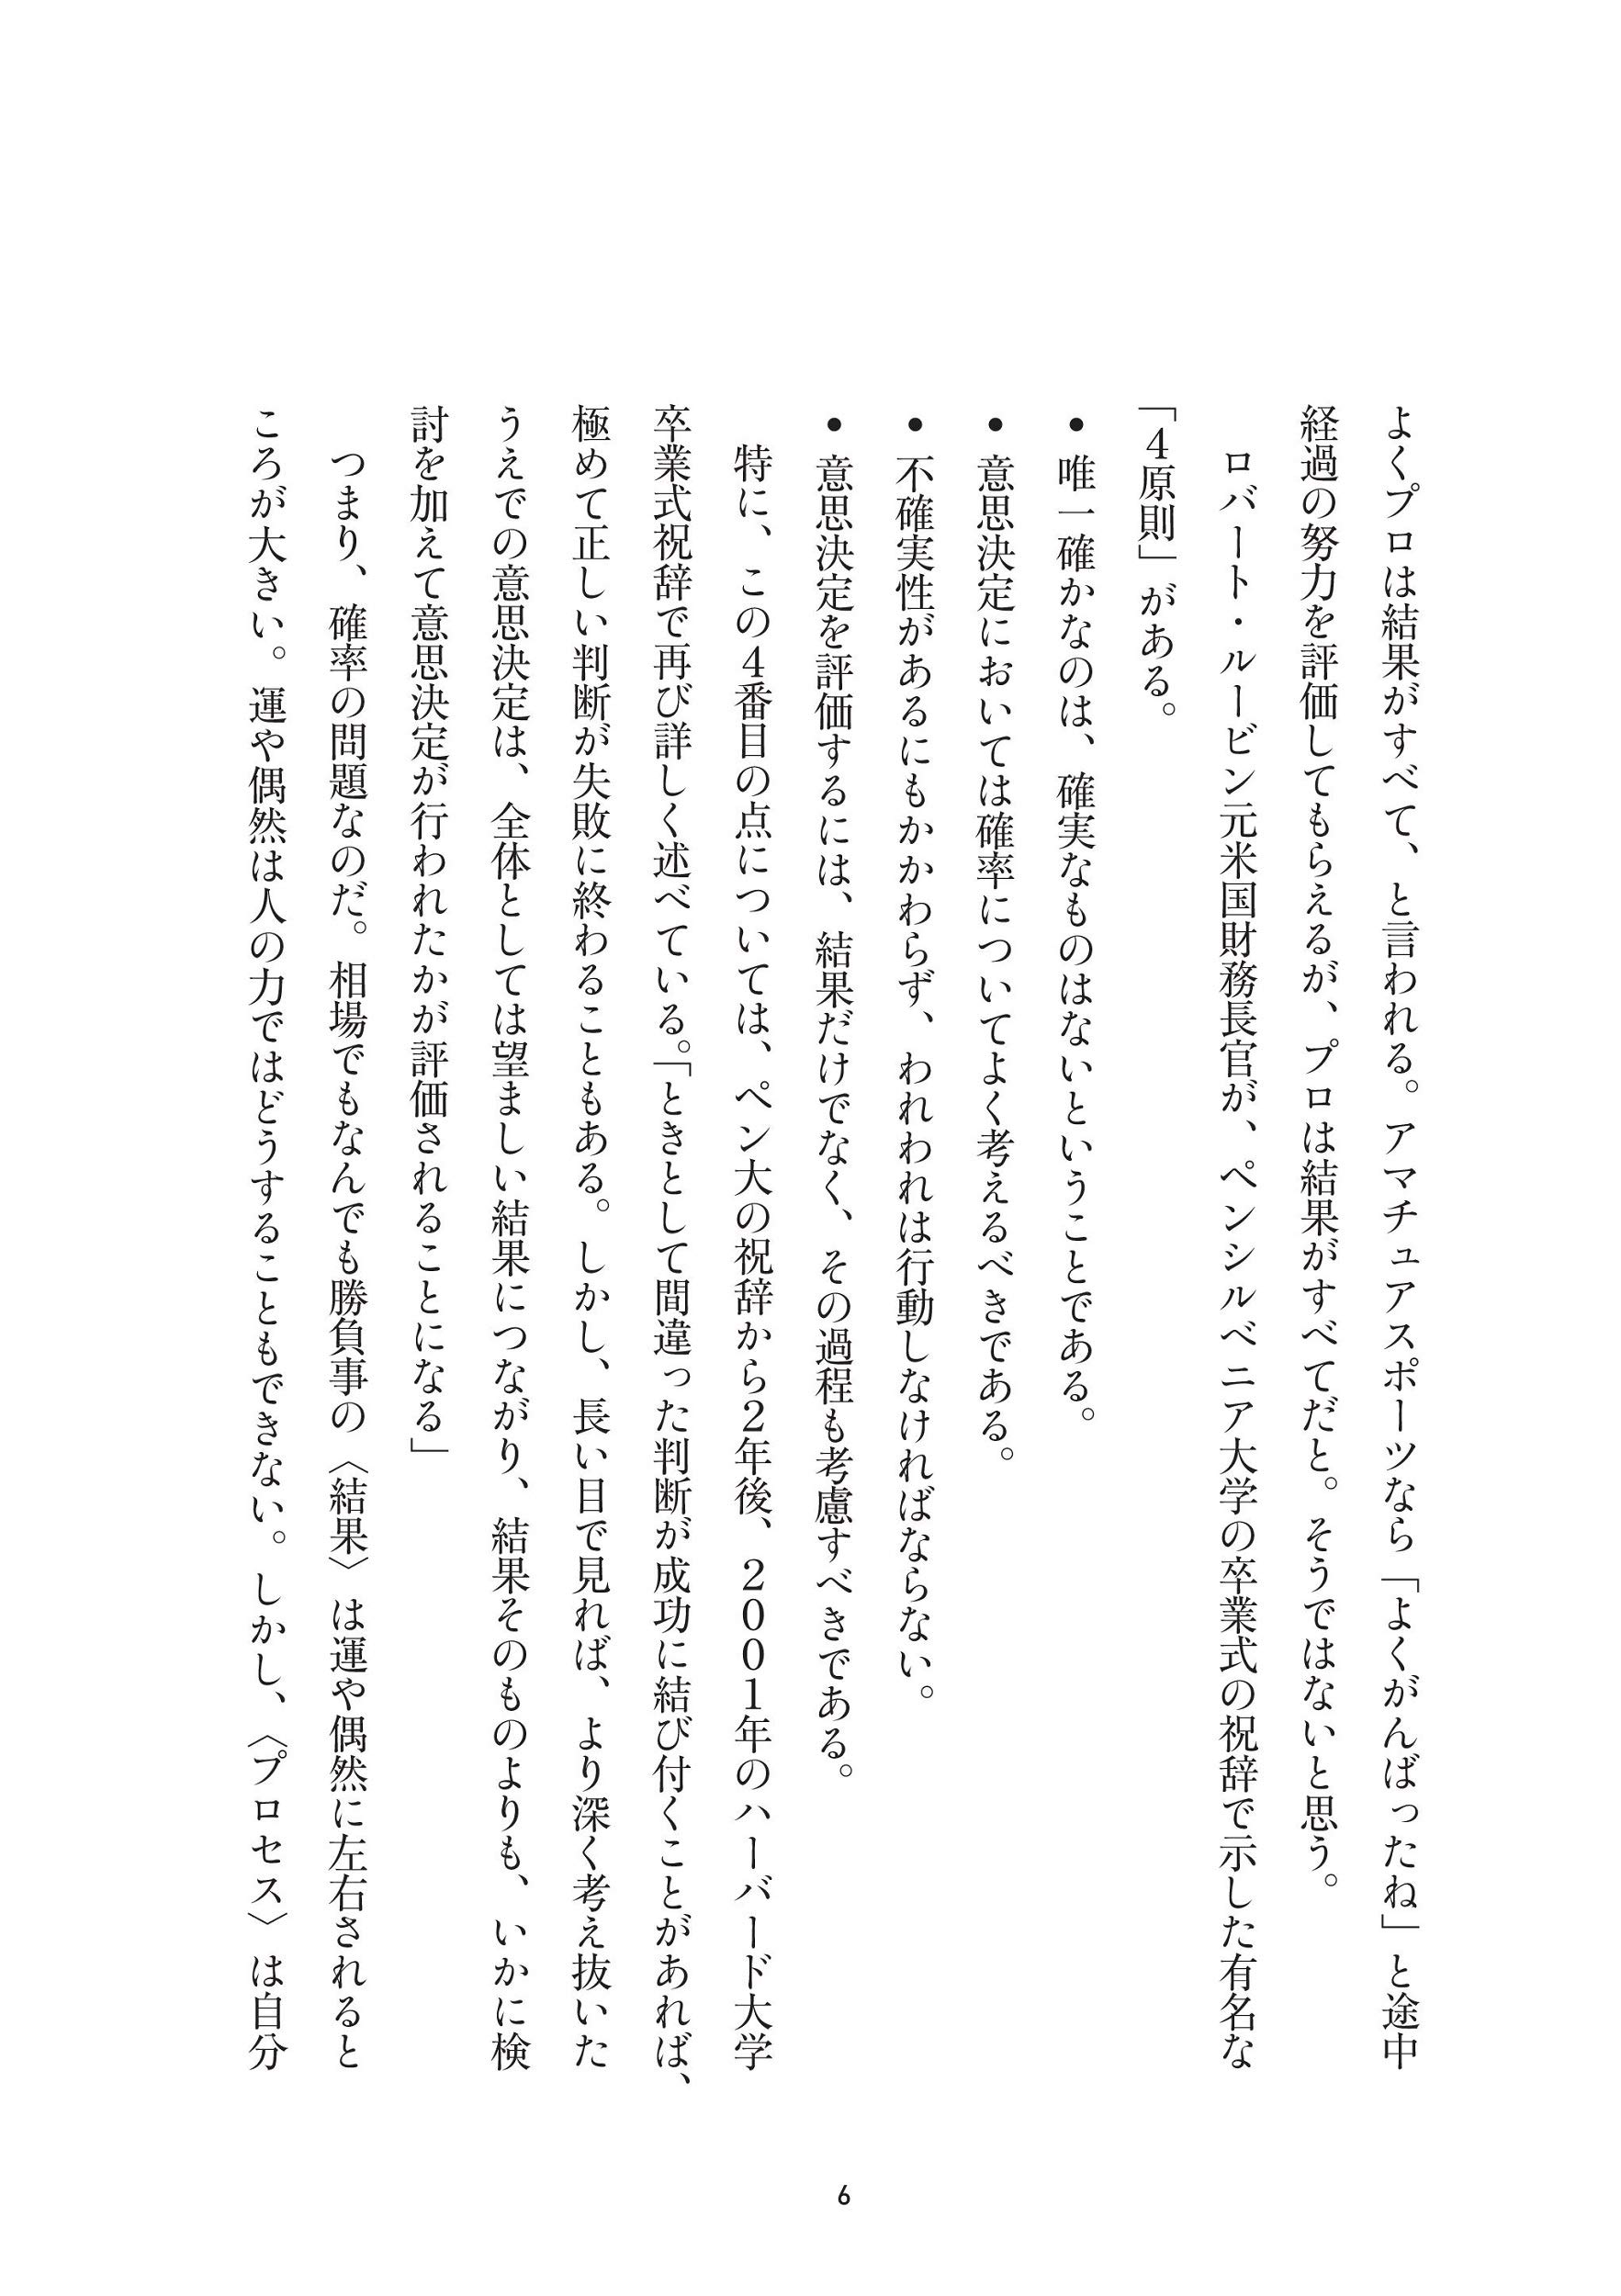 よくプロは結果がすべて、と言われる。アマチュアスポーツなら「よくがんばったね」と途中
経過の努力を評価してもらえるが、プロは結果がすべてだと。そうではないと思う。
ロバート・ルービン元米国財務長官が、ペンシルベニア大学の卒業式の祝辞で示した有名な
「4原則」がある。
●唯一確かなのは、確実なものはないということである。
●意思決定においては確率についてよく考えるべきである。
●不確実性があるにもかかわらず、われわれは行動しなければならない。
●意思決定を評価するには、結果だけでなく、その過程も考慮すべきである。
特に、この4番目の点については、ペン大の祝辞から2年後、2001年のハーバード大学
卒業式祝辞で再び詳しく述べている。「ときとして間違った判断が成功に結び付くことがあれば、
極めて正しい判断が失敗に終わることもある。しかし、長い目で見れば、より深く考え抜いた
うえでの意思決定は、全体としては望ましい結果につながり、結果そのものよりも、いかに検
討を加えて意思決定が行われたかが評価されることになる」
つまり、確率の問題なのだ。相場でもなんでも勝負事の〈結果〉は運や偶然に左右されると
ころが大きい。運や偶然は人の力ではどうすることもできない。しかし、〈プロセス〉は自分
6